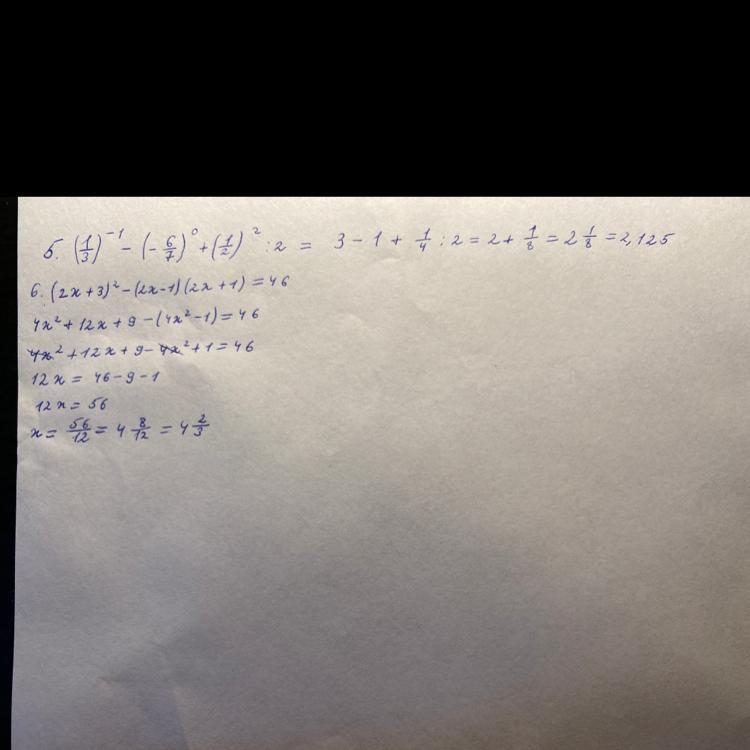 5. (1/3)^-1 - (-6/7)^0 + (1/2)^2 : 2 = 3 - 1 + 1/4 : 2 = 2 + 1/8 = 2 1/8 = 2,125
6. (2x+3)² - (2x-1)(2x+1) = 46
4x² + 12x + 9 - (4x² - 1) = 46
4x² + 12x + 9 - 4x² + 1 = 46
12x = 46 - 9 - 1
12x = 56
x = 56/12 = 4 8/12 = 4 2/3